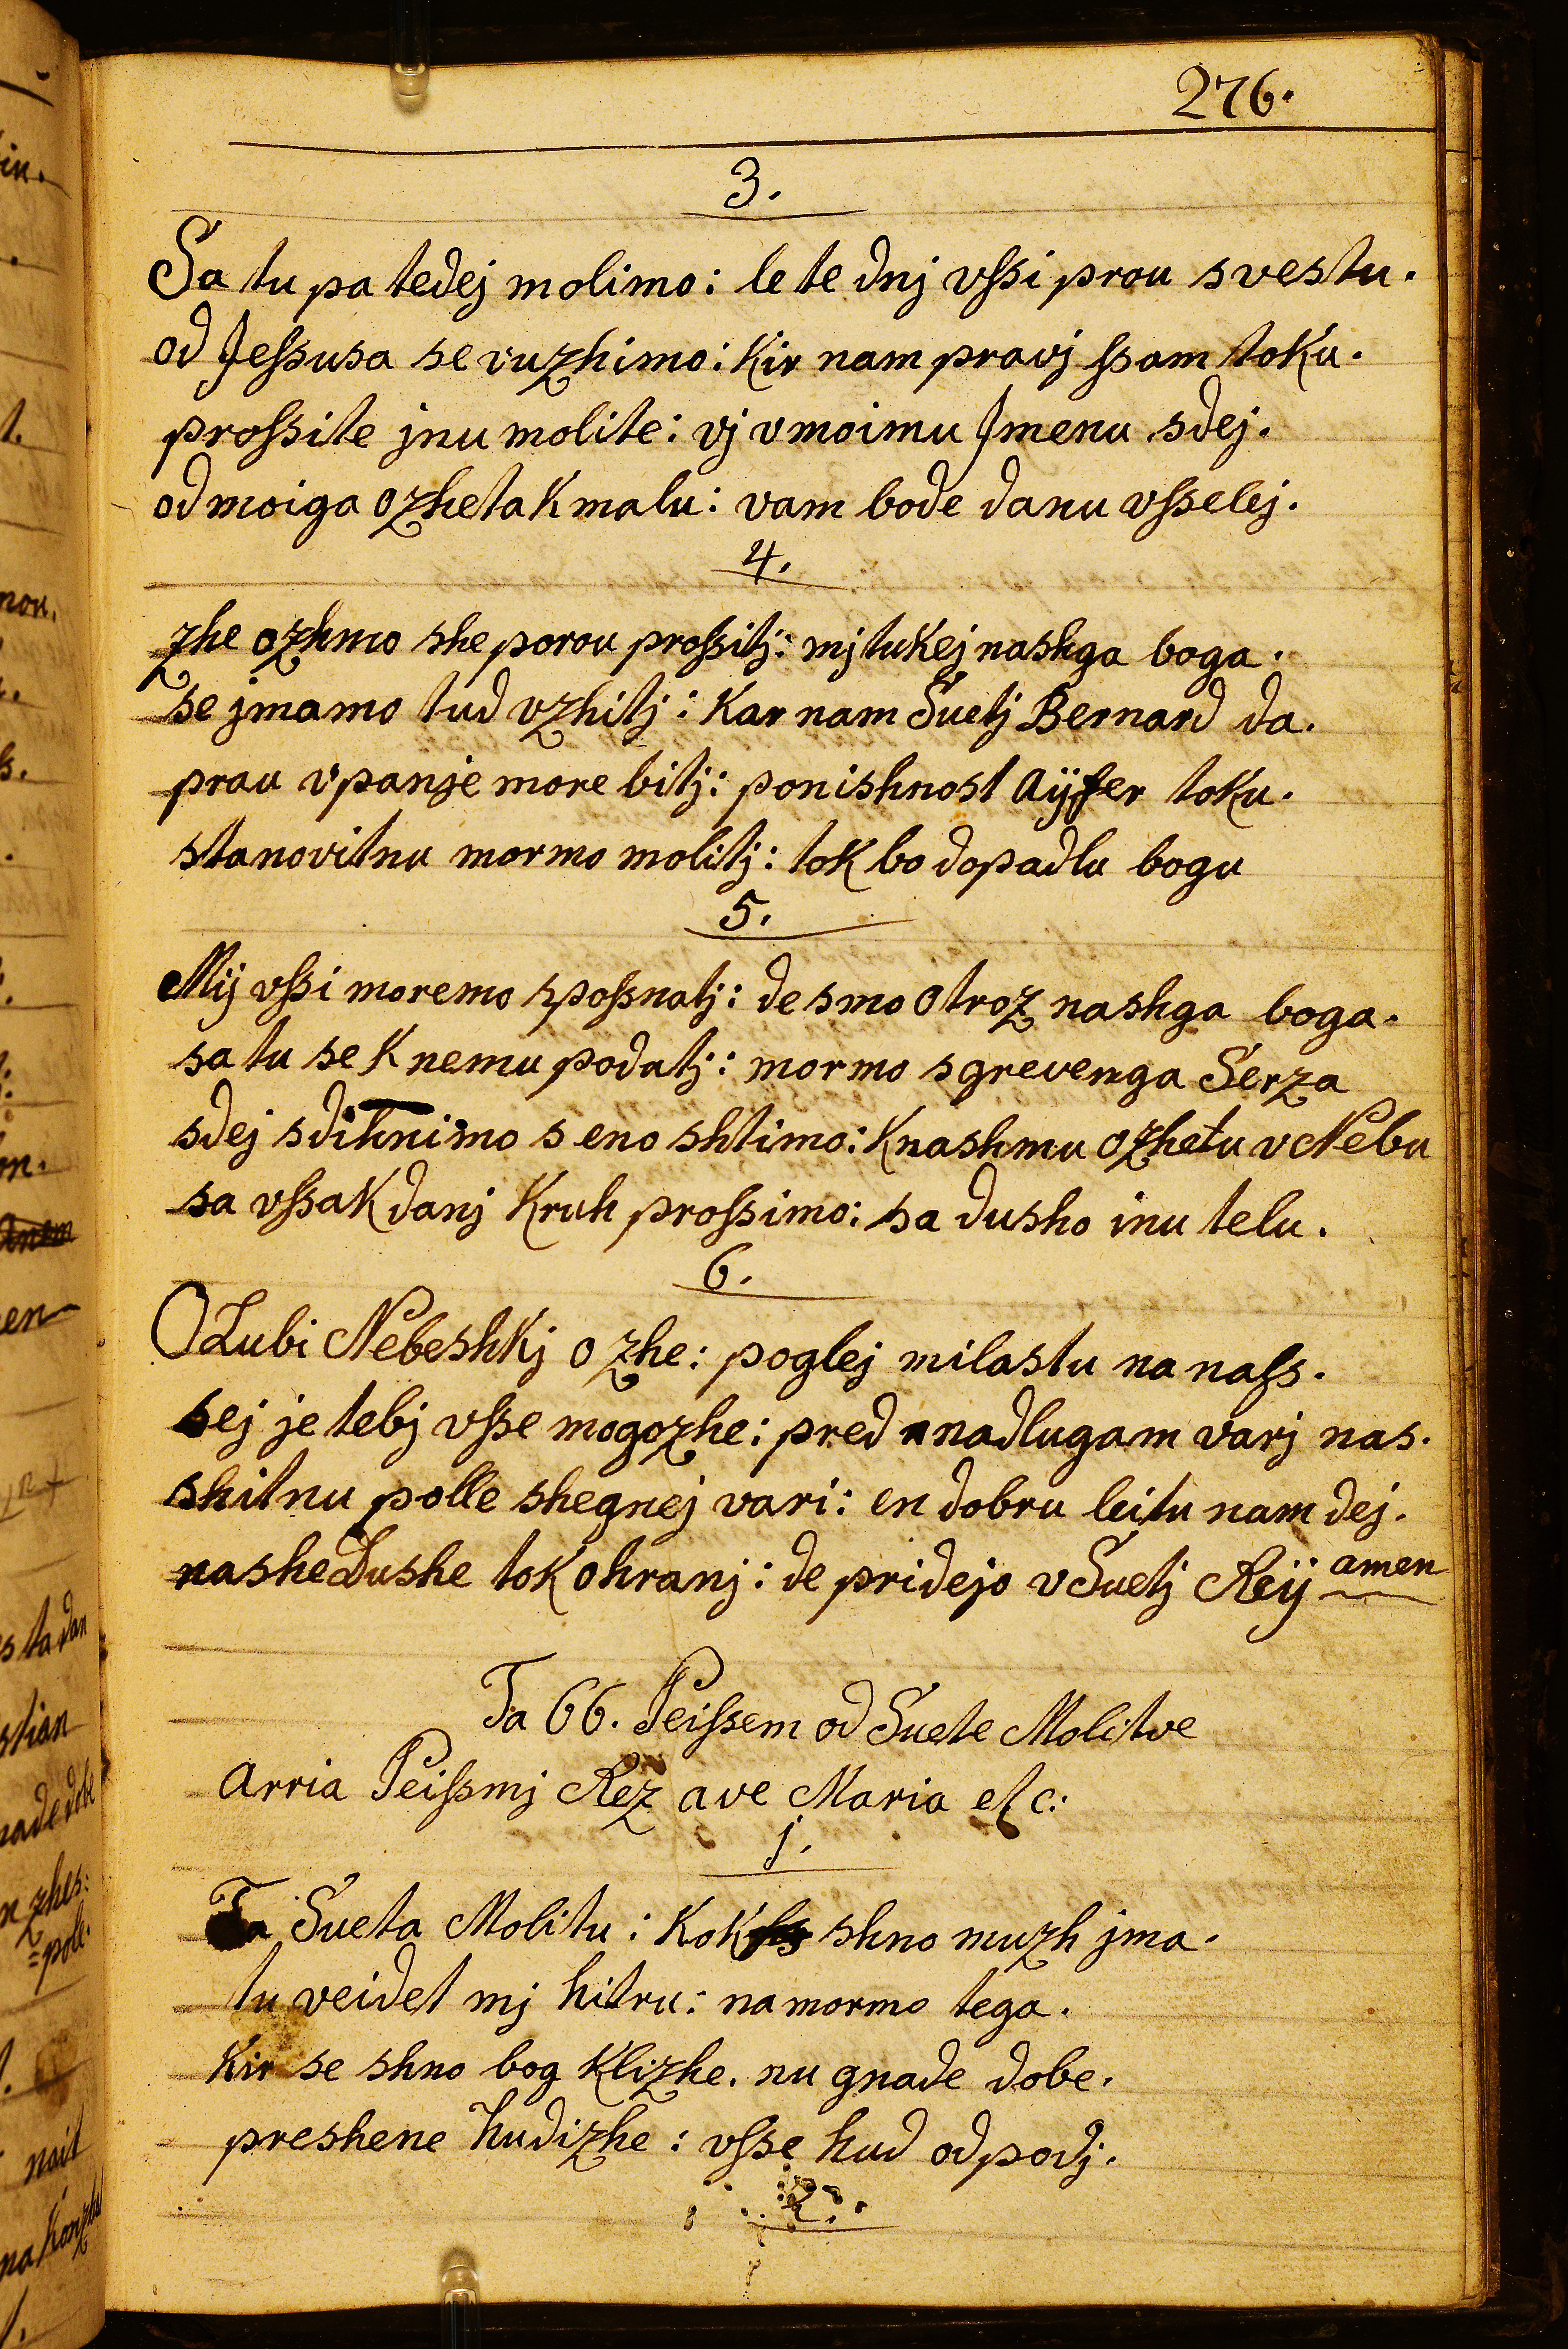 276.
3.
Sa tu pa tedej molimo: le te dnj vſsi prou svestu.
od Jeſsusa se vuzhimo: Kir nam pravj ſsam toku.
proſsite jnu molite: vj v moimu Jmenu sdej.
od moiga ozheta K malu: vam bode danu vſselej.
4.
zhe ozhmo she porou proſsitj: mj tukej nashga boga.
se jmamo tud vzhitj: Kar nam Suetj Bernard da.
prau vpanje more bitj: ponishnost aÿfer toku.
stanovitnu mormo molitj: tok bo dopadlu bogu
5.
Mij vſsi moremo spoſsnatj: de smo otroz nashga boga.
sa tu se K nemu podatj: mormo sgrevenga Serza
sdej sdihnimo s eno shtimo: K nashmu ozhetu v Nebu
sa vſsak danj Kruh proſsimo: sa dusho inu telu.
6.
O Lubi Nebeshkj ozhe: poglej milastu na naſs.
sej je tebj vſse mogozhe: pred nadlugam varj nas.
shitnu polle shegnej vari: en dobru leitu nam dej.
nashe Dushe tok ohranj: de pridejo v Suetj Reij amen
Ta 66. Peiſsem od Suete Molitve
Arria Peiſsmj Rez ave Maria etc:
1.
Ta Sueta Molitu: Kok shno muzh jma.
tu veidet mj hitru: na mormo tega.
Kir se shno bog Klizhe. nu gnade dobe.
preshene hudizhe: vſse hud odpodj.
2.